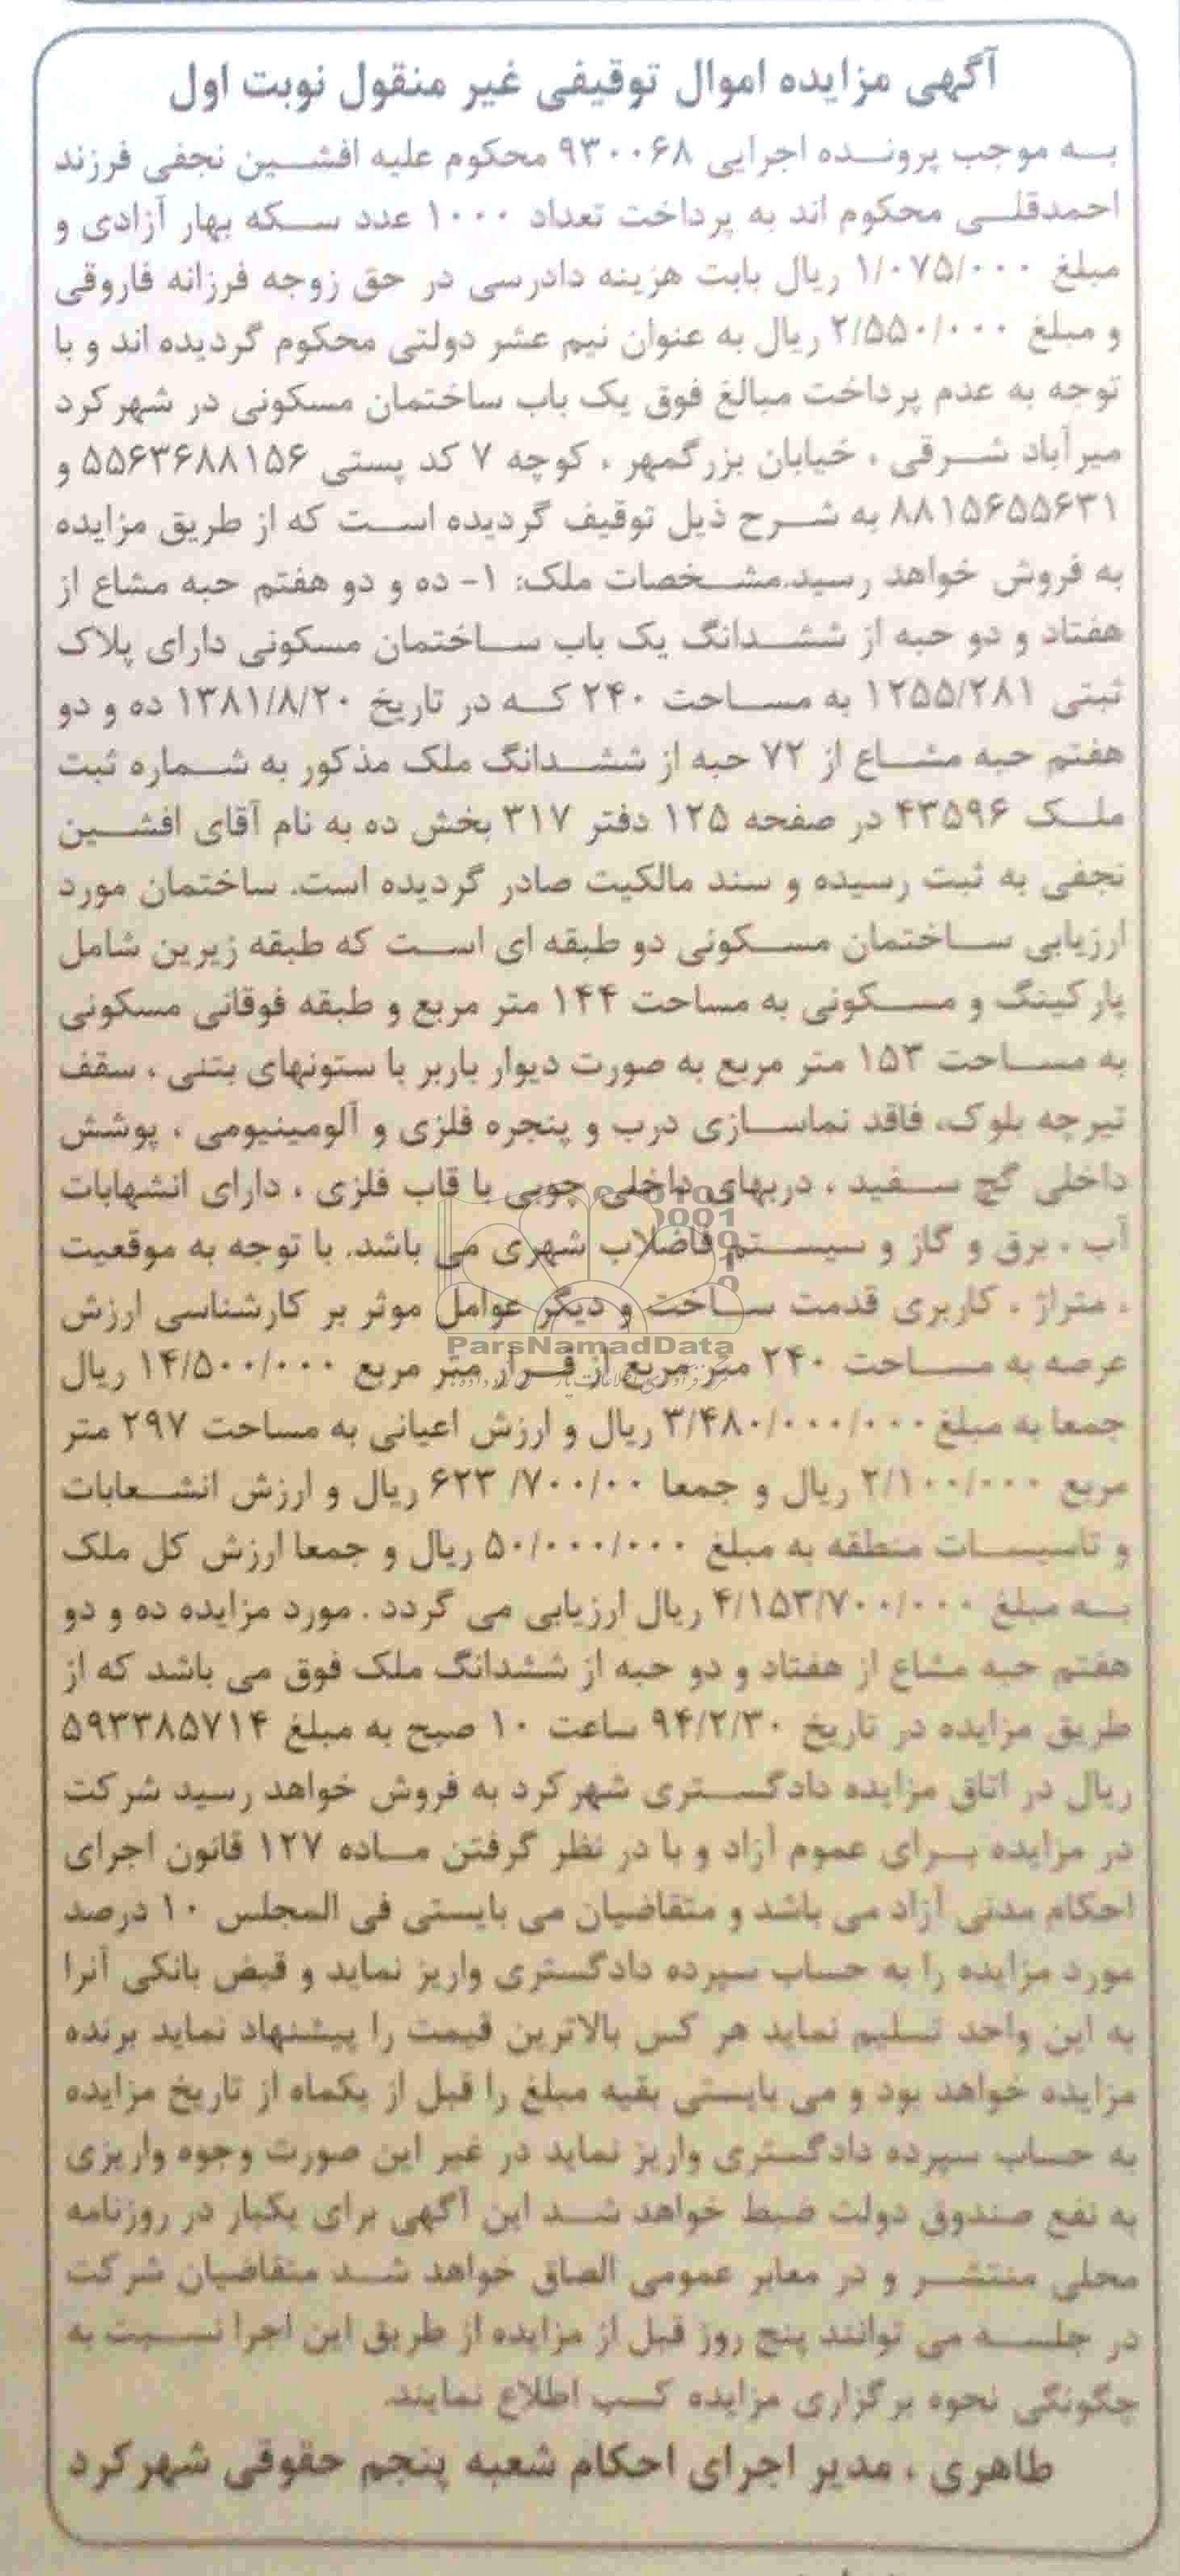 آگهی مزایده اموال توقیفی غیر منقول نوبت اول
به موجب پرونده اجرایی ۹۳۰۰۶۸ محکوم علیه افشین نجفی فرزند
احمدقلی محکوم اند به پرداخت تعداد ۱۰۰۰ عدد سکه بهار آزادی و
مبلغ ۱/۰۷۵/۰۰۰ ریال بابت هزینه دادرسی در حق زوجه فرزانه فاروقی
و مبلغ ۲/۵۵۰/۰۰۰ ریال به عنوان نیم عشر دولتی محکوم گردیده اند و با
توجه به عدم پرداخت مبالغ فوق یک باب ساختمان مسکونی در شهرکرد
میرآباد شرقی ، خیابان بزرگمهر ، کوچه ۷ کد پستی ۵۵۶۳۶۸۸۱۵۶ و
۸۸۱۵۶۵۵۶۳۱ به شرح ذیل توقیف گردیده است که از طریق مزایده
به فروش خواهد رسید.مشخصات ملک: ۱- ده و دو هفتم حبه مشاع از
هفتاد و دو حبه از ششدانگ یک باب ساختمان مسکونی دارای پلاک
ثبتی ۱۲۵۵/۲۸۱ به مساحت ۲۴۰ که در تاریخ ۱۳۸۱/۸/۲۰ ده و دو
هفتم حبه مشاع از ۷۲ حبه از ششدانگ ملک مذکور به شماره ثبت
ملک ۴۳۵۹۶ در صفحه ۱۲۵ دفتر ۳۱۷ بخش ده به نام آقای افشین
نجفی به ثبت رسیده و سند مالکیت صادر گردیده است. ساختمان مورد
ارزیابی ساختمان مسکونی دو طبقه ای است که طبقه زیرین شامل
پارکینگ و مسکونی به مساحت ۱۴۴ متر مربع و طبقه فوقانی مسکونی
به مساحت ۱۵۳ متر مربع به صورت دیوار باربر با ستونهای بتنی ، سقف
تیرچه بلوک، فاقد نماسازی درب و پنجره فلزی و آلومینیومی ، پوشش
داخلی گچ سفید ، دربهای داخلی چوبی با قاب فلزی ، دارای انشهابات
آب ، برق و گاز و سیستم فاضلاب شهری می باشد. با توجه به موقعیت
، متراژ ، کاربری قدمت ساخت و دیگر عوامل موثر بر کارشناسی ارزش
ParsNamadData
عرصه به مساحت ۲۴۰ متر مربع از قرار متر مربع ۱۴/۵۰۰/۰۰۰ ریال
جمعا به مبلغ ۳/۴۸۰/۰۰۰/۰۰۰ ریال و ارزش اعیانی به مساحت ۲۹۷ متر
مربع ۲/۱۰۰/۰۰۰ ریال و جمعا ۶۲۳ /۷۰۰/۰۰ ریال و ارزش انشعابات
و تاسیسات منطقه به مبلغ ۵۰/۰۰۰/۰۰۰ ریال و جمعا ارزش کل ملک
به مبلغ ۴/۱۵۳/۷۰۰/۰۰۰ ریال ارزیابی می گردد . مورد مزایده ده و دو
هفتم حبه مشاع از هفتاد و دو حبه از ششدانگ ملک فوق می باشد که از
طریق مزایده در تاریخ ۹۴/۲/۳۰ ساعت ۱۰ صبح به مبلغ ۵۹۳۳۸۵۷۱۴
ریال در اتاق مزایده دادگستری شهرکرد به فروش خواهد رسید شرکت
در مزایده برای عموم آزاد و با در نظر گرفتن ماده ۱۲۷ قانون اجرای
احکام مدنی آزاد می باشد و متقاضیان می بایستی فی المجلس ۱۰ درصد
مورد مزایده را به حساب سپرده دادگستری واریز نماید و قبض بانکی آنرا
به این واحد تسلیم نماید هر کس بالاترین قیمت را پیشنهاد نماید برنده
مزایده خواهد بود و می بایستی بقیه مبلغ را قبل از یکماه از تاریخ مزایده
به حساب سپرده دادگستری واریز نماید در غیر این صورت وجوه واریزی
به نفع صندوق دولت ضبط خواهد شد این آگهی برای یکبار در روزنامه
محلی منتشر و در معابر عمومی الصاق خواهد شد متقاضیان شرکت
در جلسه می توانند پنج روز قبل از مزایده از طریق این اجرا نسبت به
چگونگی نحوه برگزاری مزایده کسب اطلاع نمایند.
طاهری ، مدیر اجرای احکام شعبه پنجم حقوقی شهرکرد